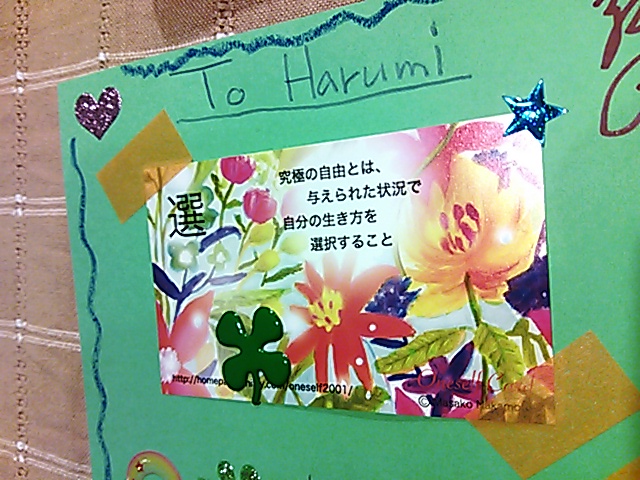 To Harumi
選
究極の自由とは、
与えられた状況で
自分の生き方を
選択すること
.com/oneself2001/
Oneself Card
©Masako Nakamo